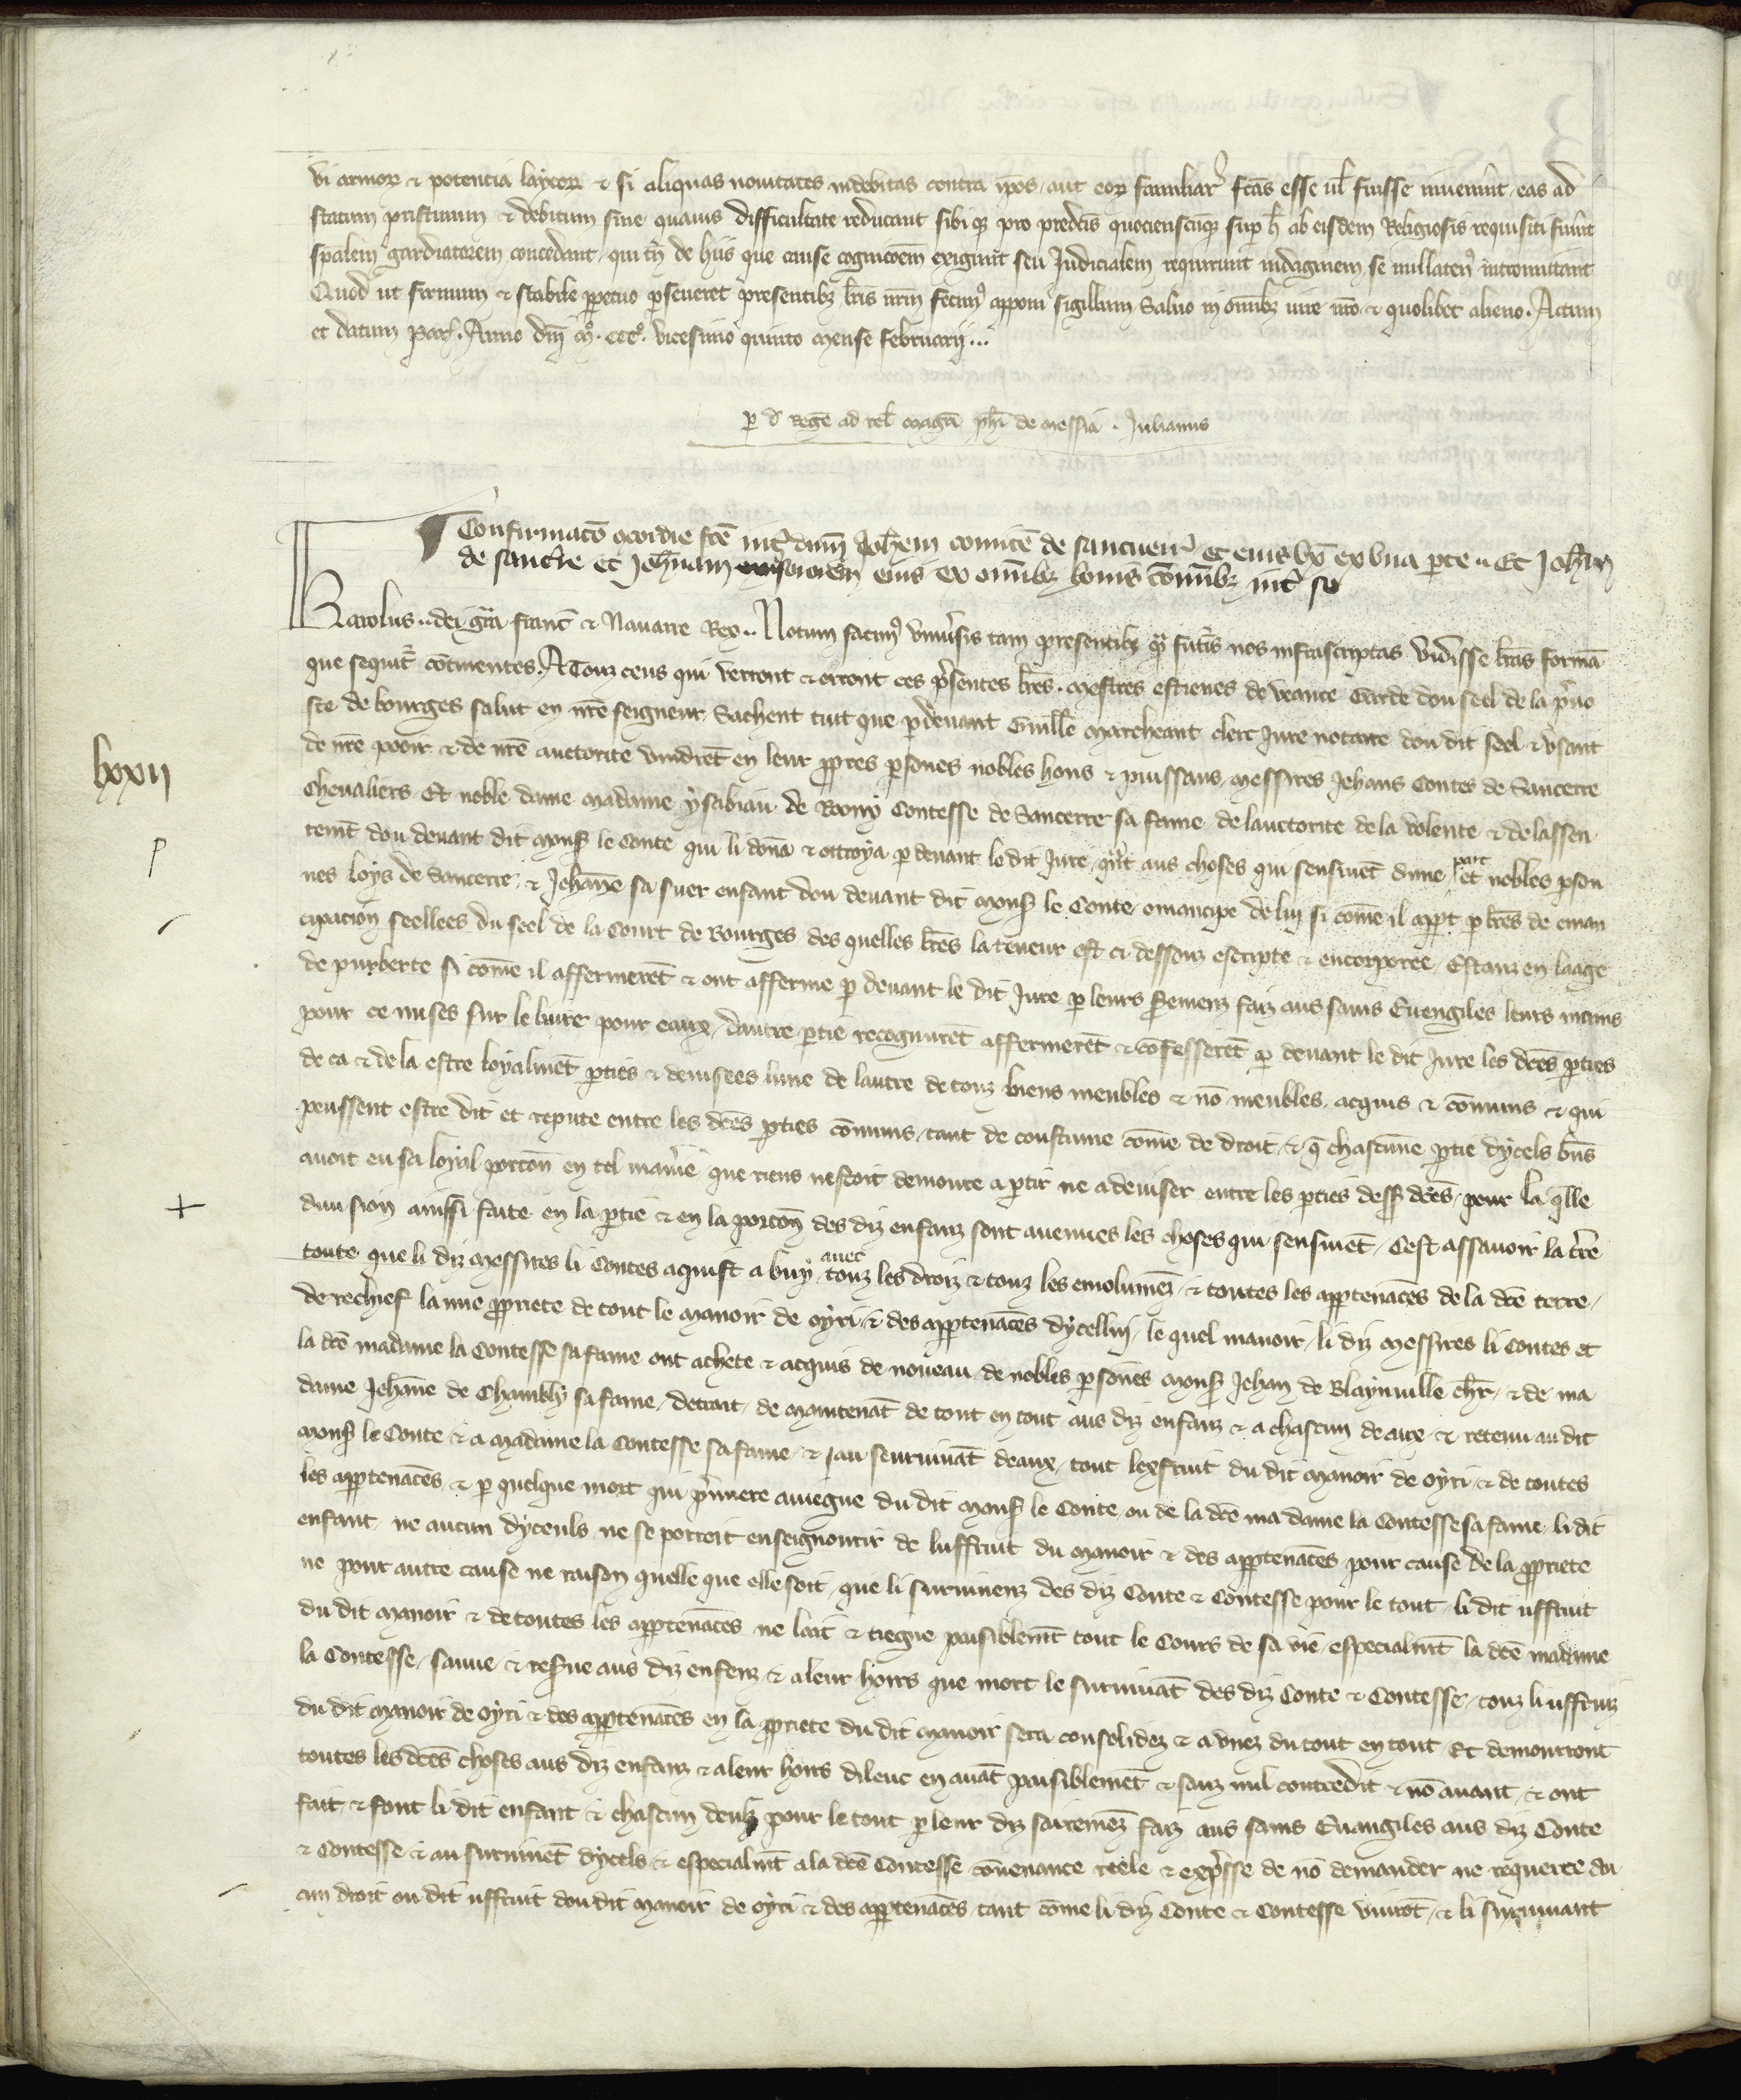 vi armor & potencia laycor & si aliquas nouitates indebitas contra ipos aut eor familiar fcas esse ul fuisse inuenerint eas ad
statum pristinum & debitum sine quauis difficultate reducant sibi q pro predcis quocienscuq sup h ab eisdem Religiosis requisiti fuint
spalem gardiatorem concedant qui tn de hiis que cause cognicoem exigunt seu Judicialem requirunt indaginem se nullaten intromittant
Quod ut firmum & stabile ppetuo pseueret presentib lris nrm fecim apponi sigillum Saluo in omib iure nro & quolibet alieno. Actum
et datum par. Anno dni mo. ccco. vicesimo quinto mense februarij...
p d Rege ad rel magri phi de messia . Julianus
Confirmaco gcordie fce int dnm Johem comite de sancuerr et eius ux ex una pte .. Et Johan
de sancre et Johnam sororem eius ex omib bonis comib int se
Karolus .. dei gra franc & Nauarre Rex .. Notum facim uniusis tam presentib q futis nos infrascriptas vidisse lras forma
que sequit continentes. A Touz ceus qui verront & orront ces psentes lres. mestres estienes de veance Garde dou seel de la puo
ste de bourges salut en nre seigneur. Sachent tuit que pdeuant Guille marcheant clerc Jure notaire dou dit seel & usant
de nre pooir & de nre auctorite vindret en leur ppres psones nobles hons & puissans messires Jehans Contes de Sancerre
Cheualiers Et noble dame madame ysabiau de Roony Contesse de Sancerre sa fame de lauctorite de la volente & de lassen
temt dou deuant dit mons le Conte qui li dona & ottroya p deuant le dit Jure qnt aus choses qui sensiuet dune part et nobles pson
nes loys de Sancerre & Jehane sa suer enfant dou deuant dit mons le Conte emancipe de luy si come il appt p lres de eman
cipacion seellees du seel de la Court de Bourges des quelles lres la teneur est ci dessouz escripte & encorporee Estanz en laage
de purberte si come il affermeret & ont afferme p deuant le dit Jure p leurs Seremenz faiz aus sains Euengiles leurs mains
pour ce mises sur le liure pour eaux dautre ptie recognurent affermeret & cofesseret p deuant le dit Jure les dces pties
de ca & de la estre loyalmet pties & deuisees lune de lautre de touz biens meubles & no meubles acquis & comuns & qui
peussent estre dit et repute entre les dces pties comuns tant de coustume come de droit & q chascune ptie dycels bns
auoit eu sa loyal porcon en tel maniere que riens nestoit demoure a ptir ne a deuiser entre les pties dess dces pour la qlle
diuision ainssi faite en la ptie & en la porcon des diz enfanz sont auenues les choses qui sensiuet Cest assauoir la tre
toute que li diz messires li Contes aquist a buy auec touz les droiz & touz les emolumez & toutes les apptenaces de la dce terre
De rechief la nue ppriete de tout le manoir de oyri & des apptenaces dycelluy le quel manoir li diz messires li Contes et
la dce madame la Contesse sa fame ont achete & acquis de noueau de nobles psones mons Jehan de Blaynuille chr & de ma
dame Jehane de Chambly sa fame detrait de maintenat de tout en tout aus diz enfanz & a chascun de aux & retenu au dit
mons le Conte & a madame la Contesse sa fame & au seuruiuat deaux tout lexfruit du dit manoir de oyri & de toutes
les apptenaces & p quelque mort qui pmiere auiegne du dit mons le Conte ou de la dce ma dame la Contesse sa fame li dit
enfant ne aucun dyceuls ne se porroit enseignourir de luffruit du manoir & des apptenaces pour cause de la ppriete
ne pour autre cause ne raison quelle que elle soit que li suruiuenz des diz Conte & Contesse pour le tout li dit uffruit
du dit manoir & de toutes les apptenaces ne lait & tiegne paisiblemt tout le Cours de sa vie especialmt la dce madame
la Contesse sauue & reserue aus diz enfenz & a leur hoirs que mort le suruiuat des diz Conte & Contesse touz li uffruiz
du dit manoir de oyri & des apptenaces en la ppriete du dit manoir sera consolidez & adunez du tout en tout Et demourront
toutes les dces choses aus diz enfanz & a leur hoirs dileuc en auat paisiblemet & sanz nul contredit & no auant & ont
fait & font li dit enfant & chascun deulz pour le tout p leur diz sairemez faiz aus sains Euangiles aus diz Conte
& Contesse & au suruiuet dycels & especialmt a la dce Contesse conuenance reele & expsse de no demander ne requerre au
cun droit ou dit uffruit dou dit manoir de oyri & des apptenaces tant come li diz Conte & Contesse viurot & li suruiuant
lxxii